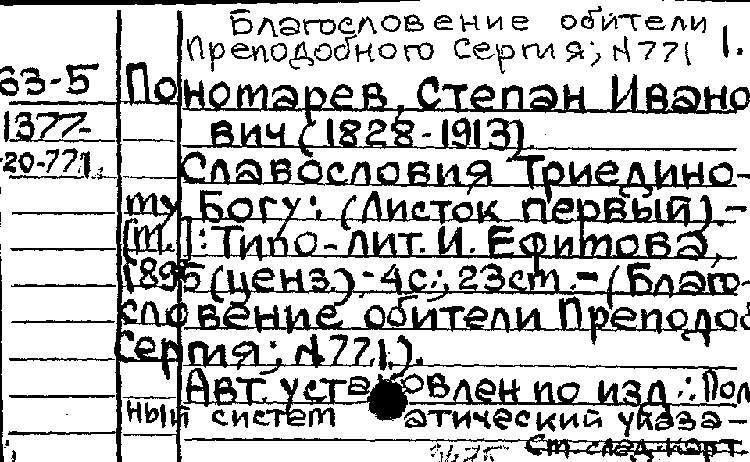 Благословение обители
Преподобного Сергия; N771 1.
63-5 Пономарев, Степан Ивано
1377- вич (1828-1913)
20-771. Славословия Триедино-
му Богу: (Листок первый).-
[М.]: Типо-лит. И. Ефимова,
1895 (ценз.).-4с.; 23см.-(Благо-
словение обители Преподоб
Сергия; N771.).
Авт. установлен по изд.: Пол
ный систематический указа-
См. след. карт.